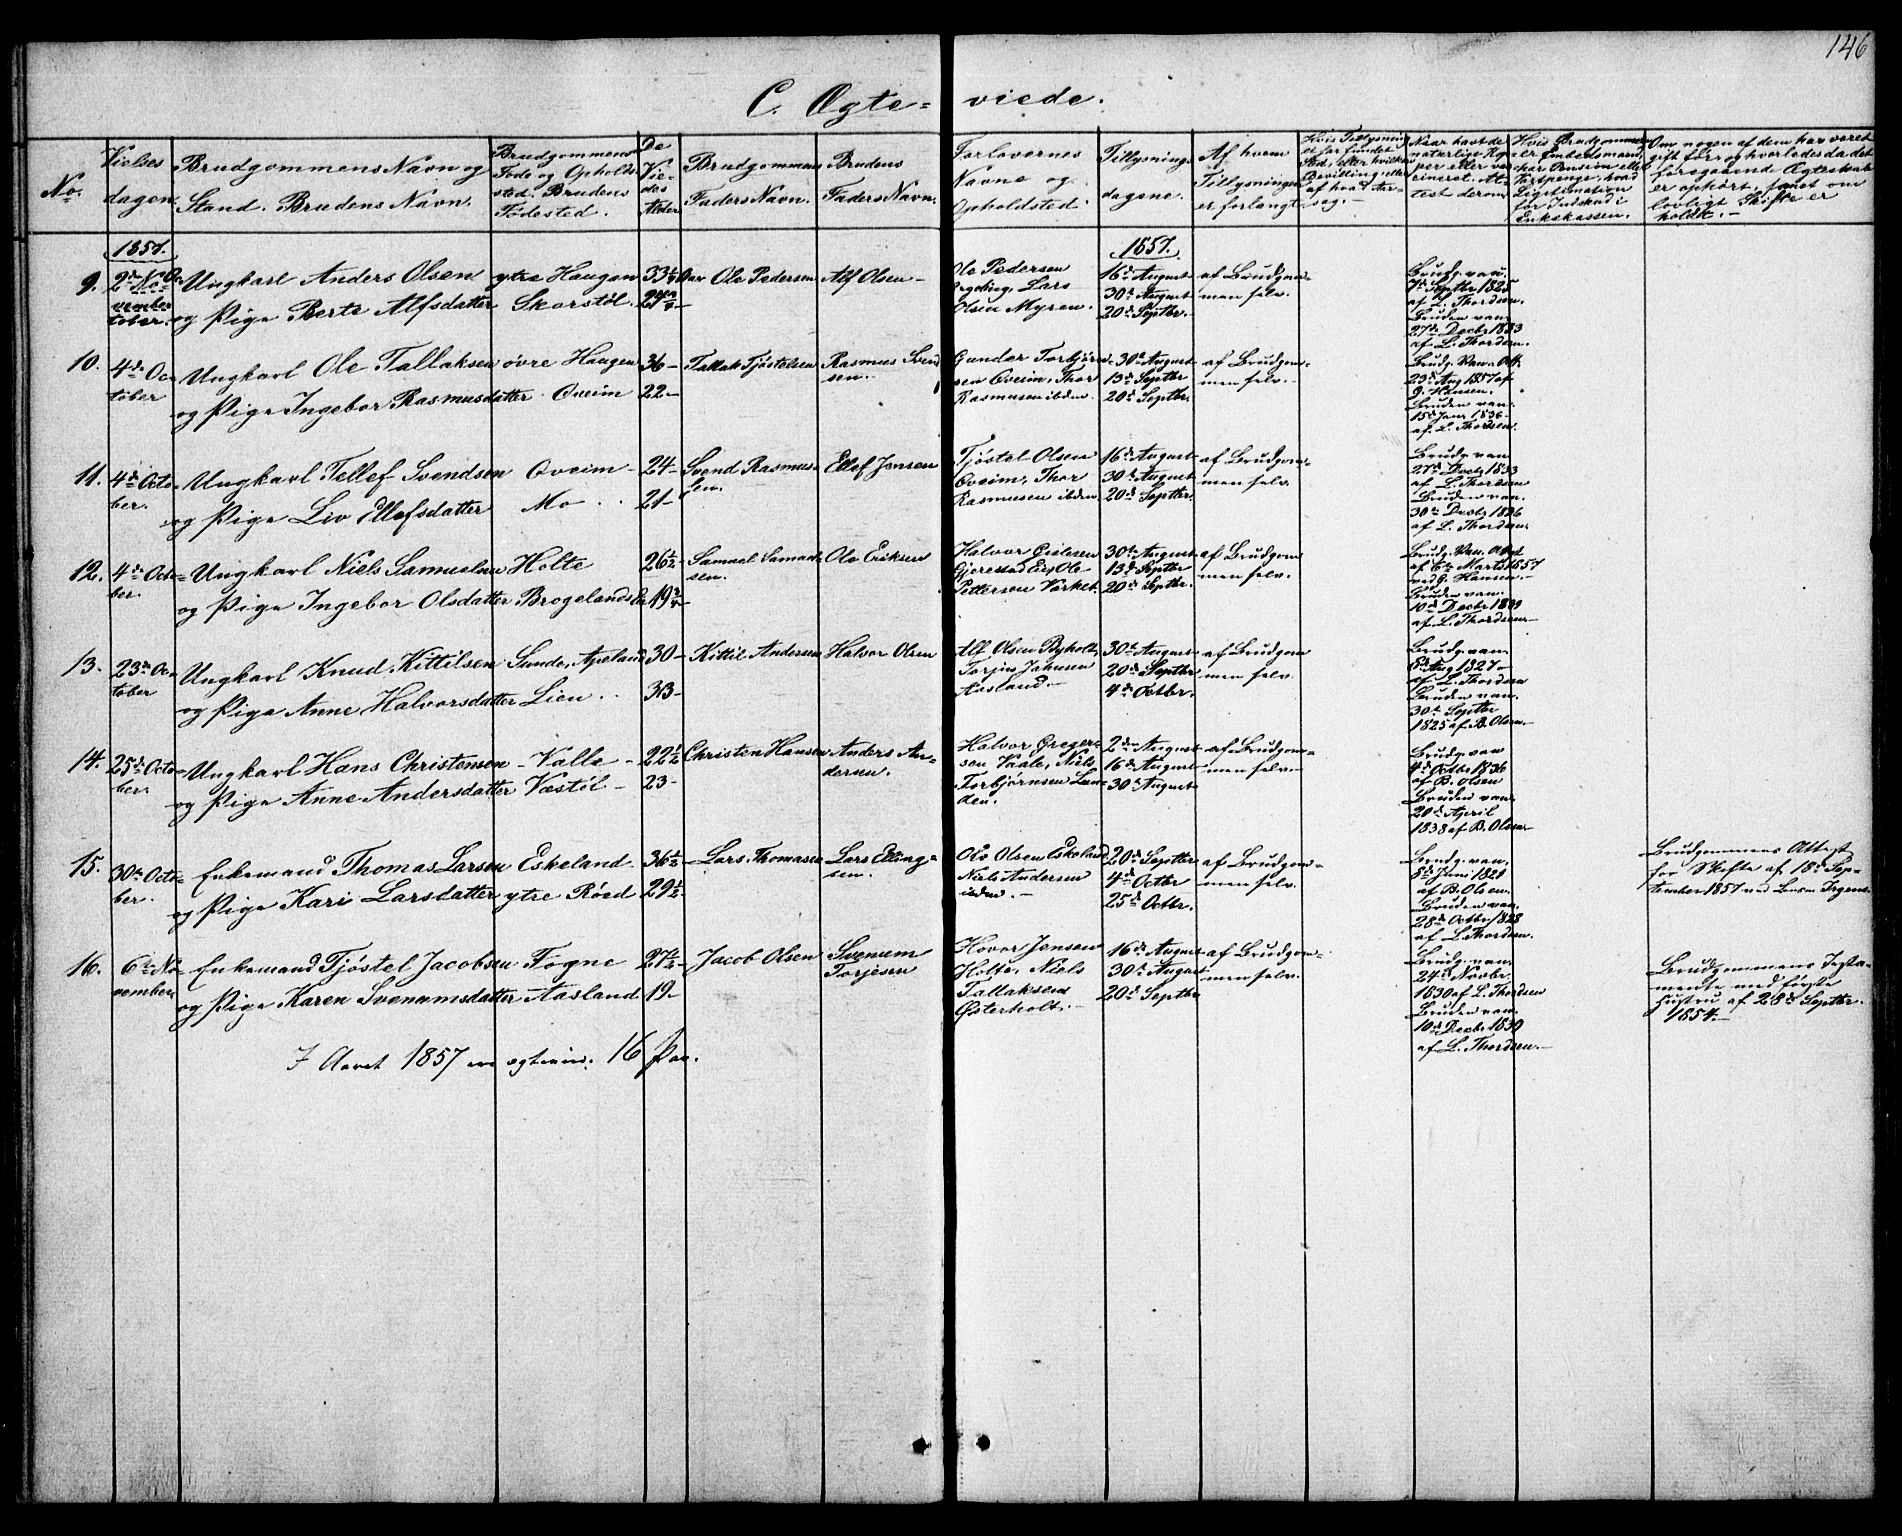 146
C. Ægte-viede.
No.
Vielses dagen.
Brudgommens Navn og Stand. Brudens Navn.
Brudgommens Føde og Opholds sted. Brudens Fødested.
De Viedes Alder
Brudgommens Faders Navn.
Brudens Faders Navn.
Forlovernes Navne og Opholdsted.
Tillysnings dagene.
Af hvem Tillysningen er forlangt
Hvis Tillysning ei har fundet Sted, efter hvilken Bevilling, eller af hvad Aarsag.
Naar havt de naturlige Kopper eller vaccineret. Attest derom
Hvis Brudgommen er Embedsmand,
Om nogen af dem har været gift før, og hvorledes da det foregaaende Ægteskab er ophørt, samt om lovligt Skifte er holdt.
1857.
1857.
9.
2de No
vember
tober.
Ungkarl Anders Olsen
og Pige Berte Alfsdatter
ytre Haugen
Skorstøl.
Ole Pedersen
Alf Olsen
Ole Pedersen
Lars
Olsen Myren.
16de August
30te August
20de Septbr.
af Brudgom
men selv.
Brudg. van.
7de Septbr 1825
af L. Thordsen.
Bruden van.
27de Decbr 1833
af L. Thordsen.
10.
4de Oc
tober
Ungkarl Ole Tallaksen
og Pige Ingebor Rasmusdatter
øvre Haugen
Oveim
36
22
Tallak Tjøstelsen
Rasmus Svend
sen.
Gunder Torbjørn
sen Oveim, Thor
Rasmusen ibden.
30te August
13de Septbr
20de Septbr.
af Brudgom
men selv.
Brudg. Van. Att.
23de Aug 1857 af
G. Hansen.
Bruden van.
15de Janr 1836
af L. Thordsen.
11.
4de Octo
ber.
Ungkarl Tellef Svendsen
og Pige Liv Ellefsdatter
Oveim
Mo
24
21
Svend Rasmus
sen.
Ellef Jensen
Tjøstel Olsen
Oveim, Thor
Rasmusen ibden
16de August
30te August
20de Septbr.
af Brudgom
men selv.
Brudg van
27de Decbr 1833
af L. Thordsen
Bruden van.
30te Decbr 1836
af L. Thordsen.
12.
4de Octo
ber.
Ungkarl Niels Samuelsen
og Pige Ingebor Olsdatter
Holte
Brogelands
26½
19¾
Samuel Samuel
sen.
Ole Eriksen
Halvor Gislesen
Gjerestad Ole
Pettersen Værket
30te August
13de Septbr
20de Septbr.
af Brudgom
men selv.
Brudg. Vac. Attest
af 6te Marts 1857
ved G. Hansen.
Bruden van.
10de Decbr 1839
af L. Thordsen
13.
23de Oc
tober
Ungkarl Knud Kittilsen
og Pige Anne Halvorsdatter
Sunde, Apeland
Lien
30
33
Kittil Andersen
Halvor Olsen
Alf Olsen Ryholt,
Torjus Jakusen
Aasland.
30te August
20de Septbr
4de Octbr.
af Brudgom
men selv.
Brudg. van.
8de Aug 1827
af L. Thordsen
Bruden van.
30te Septbr
1825 af B. Olsen.
14.
25de Octo
ber.
Ungkarl Hans Christensen
og Pige Anne Andersdatter
Valle
Væstøl
22½
23
Christen Hansen
Anders An
dersen.
Halvor Greger
sen Kvale, Niels
Torbjørnsen Lun
den.
2den August
16de August
30te August
af Brudgom
men selv.
Brudg. van
4de Octbr 1836
af B. Olsen
Bruden van.
20de April
1838 af B. Olsen
15.
30te Octo
ber.
Enkemand Thomas Larsen
og Pige Kari Larsdatter
Eskeland
ytre Røed
36½
29½
Lars Thomasen
Lars Elling
sen.
Ole Olsen Eskeland
Niels Andersen
ibden.
20de Septbr
4de Octbr
25de Octbr.
af Brudgom
men selv.
Brudg. van.
8de Juni 1821
af B. Olsen.
Bruden van.
28de Octbr 1828
af L. Thordsen.
Brudgommens Attest
for Skifte af 18de Sep
tember 1857 ved
16.
6te No
vember.
Enkemand Tjøstel Jacobsen
og Pige Karen Svenumsdatter
Fogne
Aasland
27½
19
Jacob Olsen
Svenum
Torjesen
Hovor Jensen
Holte, Niels
Tallaksen
Østerholt.
16de August
30te August
20de Septbr
af Brudgom
men selv.
Brudg. van.
24de Novbr.
1830 af L. Thordsen
Bruden van.
10de Decbr 1839
af L. Thordsen.
Brudgommens Testa
mente med første
Hustru af 28de Septbr.
1854.
I Aaret 1857 ere ægteviede 16 Par.